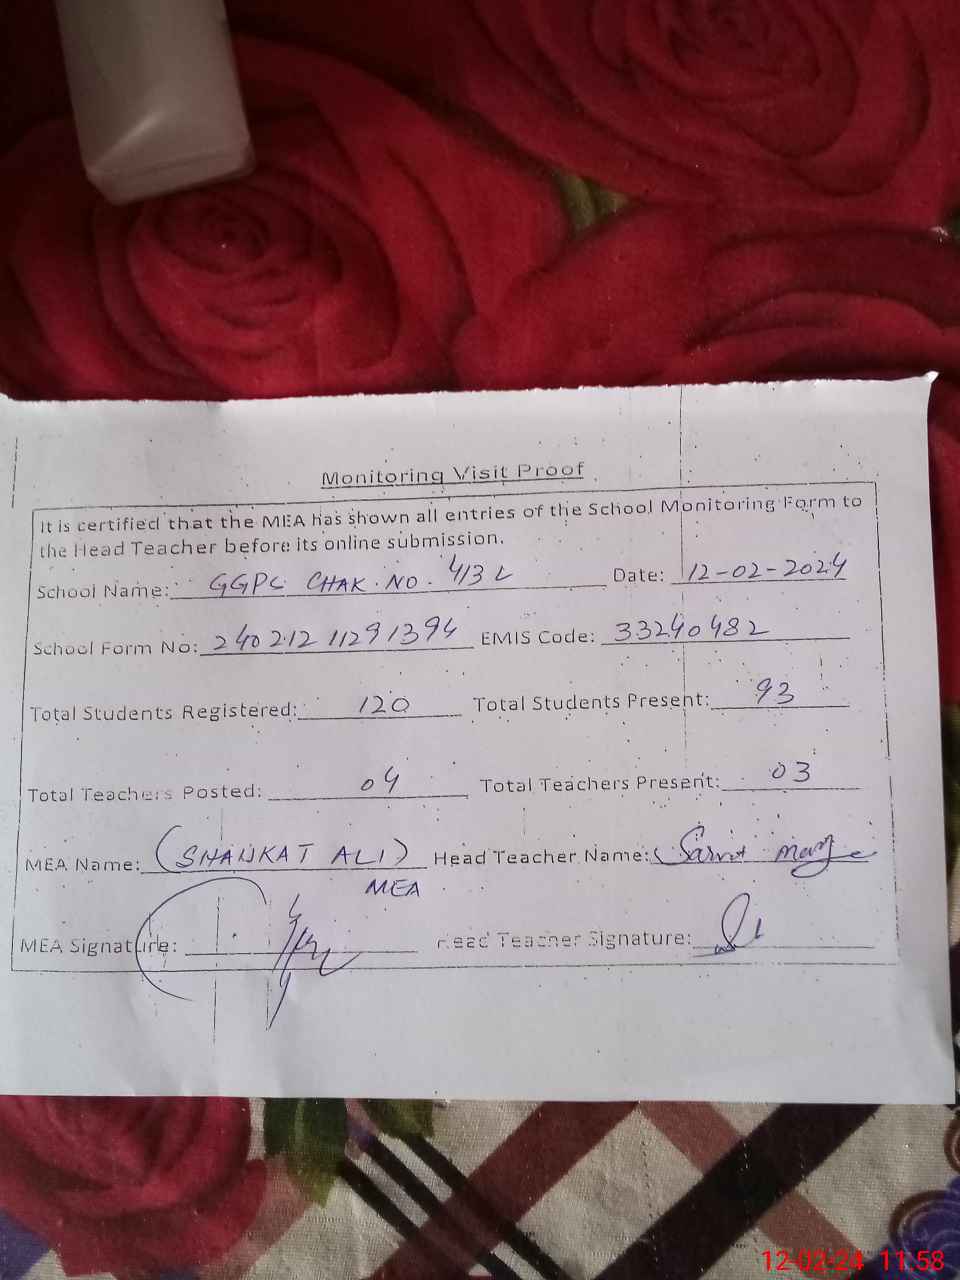 Monitoring Visit Proof
It is certified that the MEA has shown all entries of the School Monitoring Form to
the Head Teacher before its online submission.
School Name: GGPS CHAK NO. 413 L Date: 12-02-2024
School Form No: 24021211291394 EMIS Code: 33240482
Total Students Registered: 120 Total Students Present: 93
Total Teachers Posted: 04 Total Teachers Present: 03
MEA Name: (SHAUKAT ALI) Head Teacher Name:
MEA
MEA Signature: Head Teacher Signature:
12-02-24 11:58